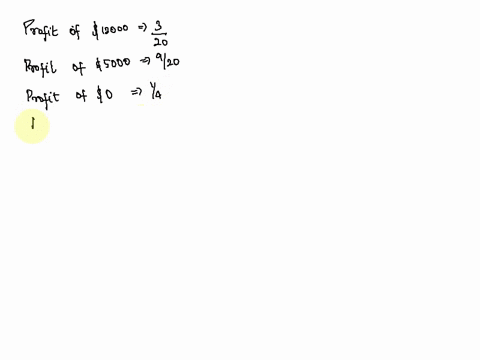 Profit of $12000 => 3/20
Profit of $5000 => 9/20
Profit of $0 => 1/4